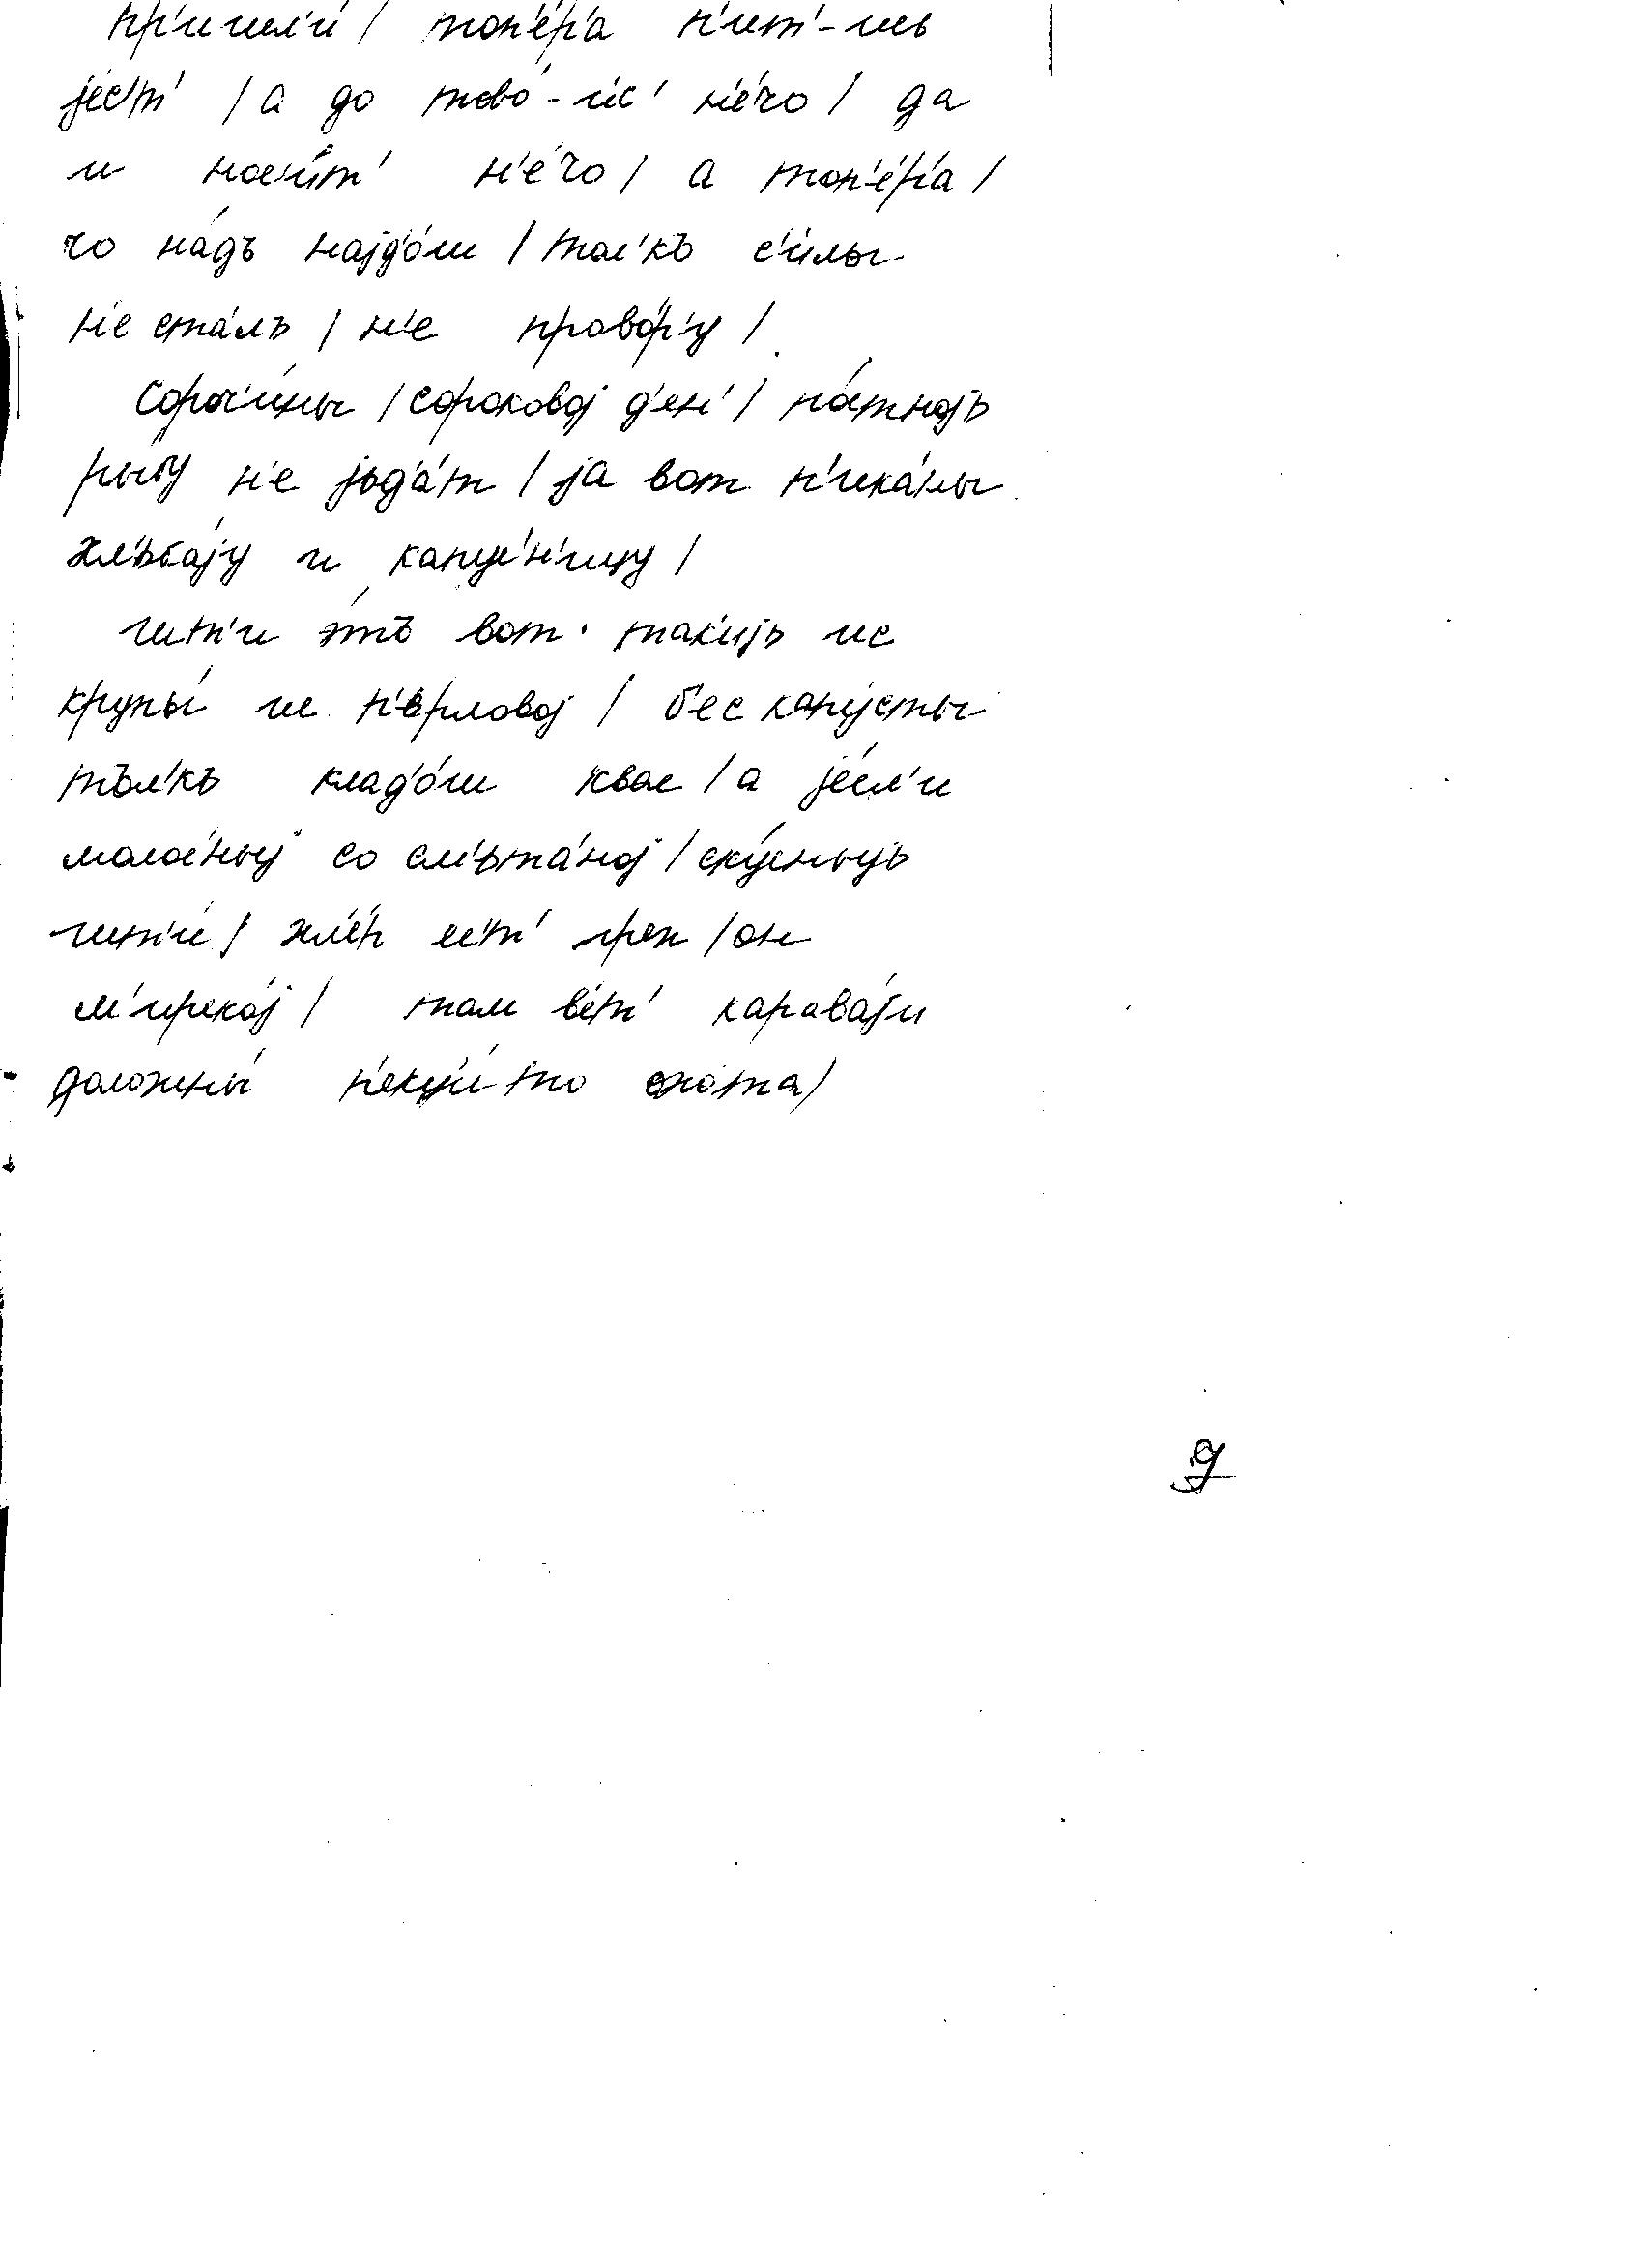 пр'ишл'и́ / топ'е́р'а п'ит'-ис
је́ст' / а до тово́-ис' н'е́чо / да
и нос'и́т' н'е́чо / а топ'е́р'а /
чо на́дъ најд'о́ш / тол'къ с'и́лы
н'е ста́лъ / н'е прово́р'у /
сороч'и́ны / сороковој д'ен' / по́стнојъ
рыбу н'е јьд'а́т / ја вот п'ика́лы
хл'ьба́јў и капус'н'ицу /
шт'и э́тъ вот такијь ис
крупы́ ис п'ьрловој / б'ес капу́сты
тъл'къ клад'о́ш квас / а је́сл'и
молос'ныј со см'ьта́ној / ску́сныјь
шт'и / хл'еп ист' грех / он
м'ирско́ј / там в'ет' карава́ји
должны́ п'екчи́ то охо́та /
9